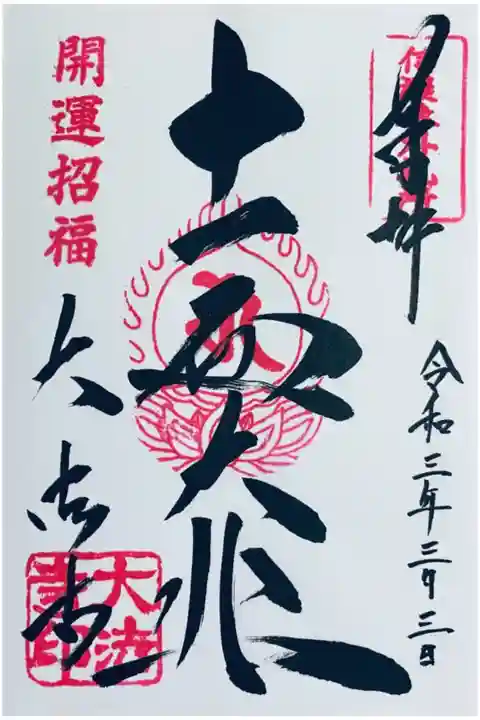 奉拝
令和三年三月三日
十一面大悲
開運招福
大法寺